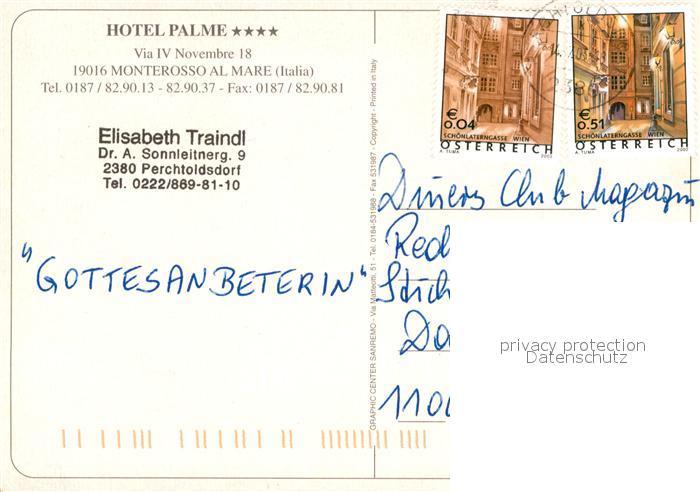 HOTEL PALME ★★★★
Via IV Novembre 18
19016 MONTEROSSO AL MARE (Italia)
Tel. 0187 / 82.90.13 - 82.90.37 - Fax: 0187 / 82.90.81
Elisabeth Traindl
Dr. A. Sonnleitnerg. 9
2380 Perchtoldsdorf
Tel. 0222/869-81-10
"GOTTESANBETERIN"
GRAPHIC CENTER SANREMO - Via Matteotti, 51 - Tel. 0184-531988 - Fax 531987 - Copyright - Printed in Italy
€ 0.04
SCHÖNLATERNGASSE WIEN
ÖSTERREICH
A. TUMA 2002
€ 0.51
SCHÖNLATERNGASSE WIEN
ÖSTERREICH
A. TUMA 2002
Diners Club Magazin
Red
Do
110
privacy protection
Datenschutz